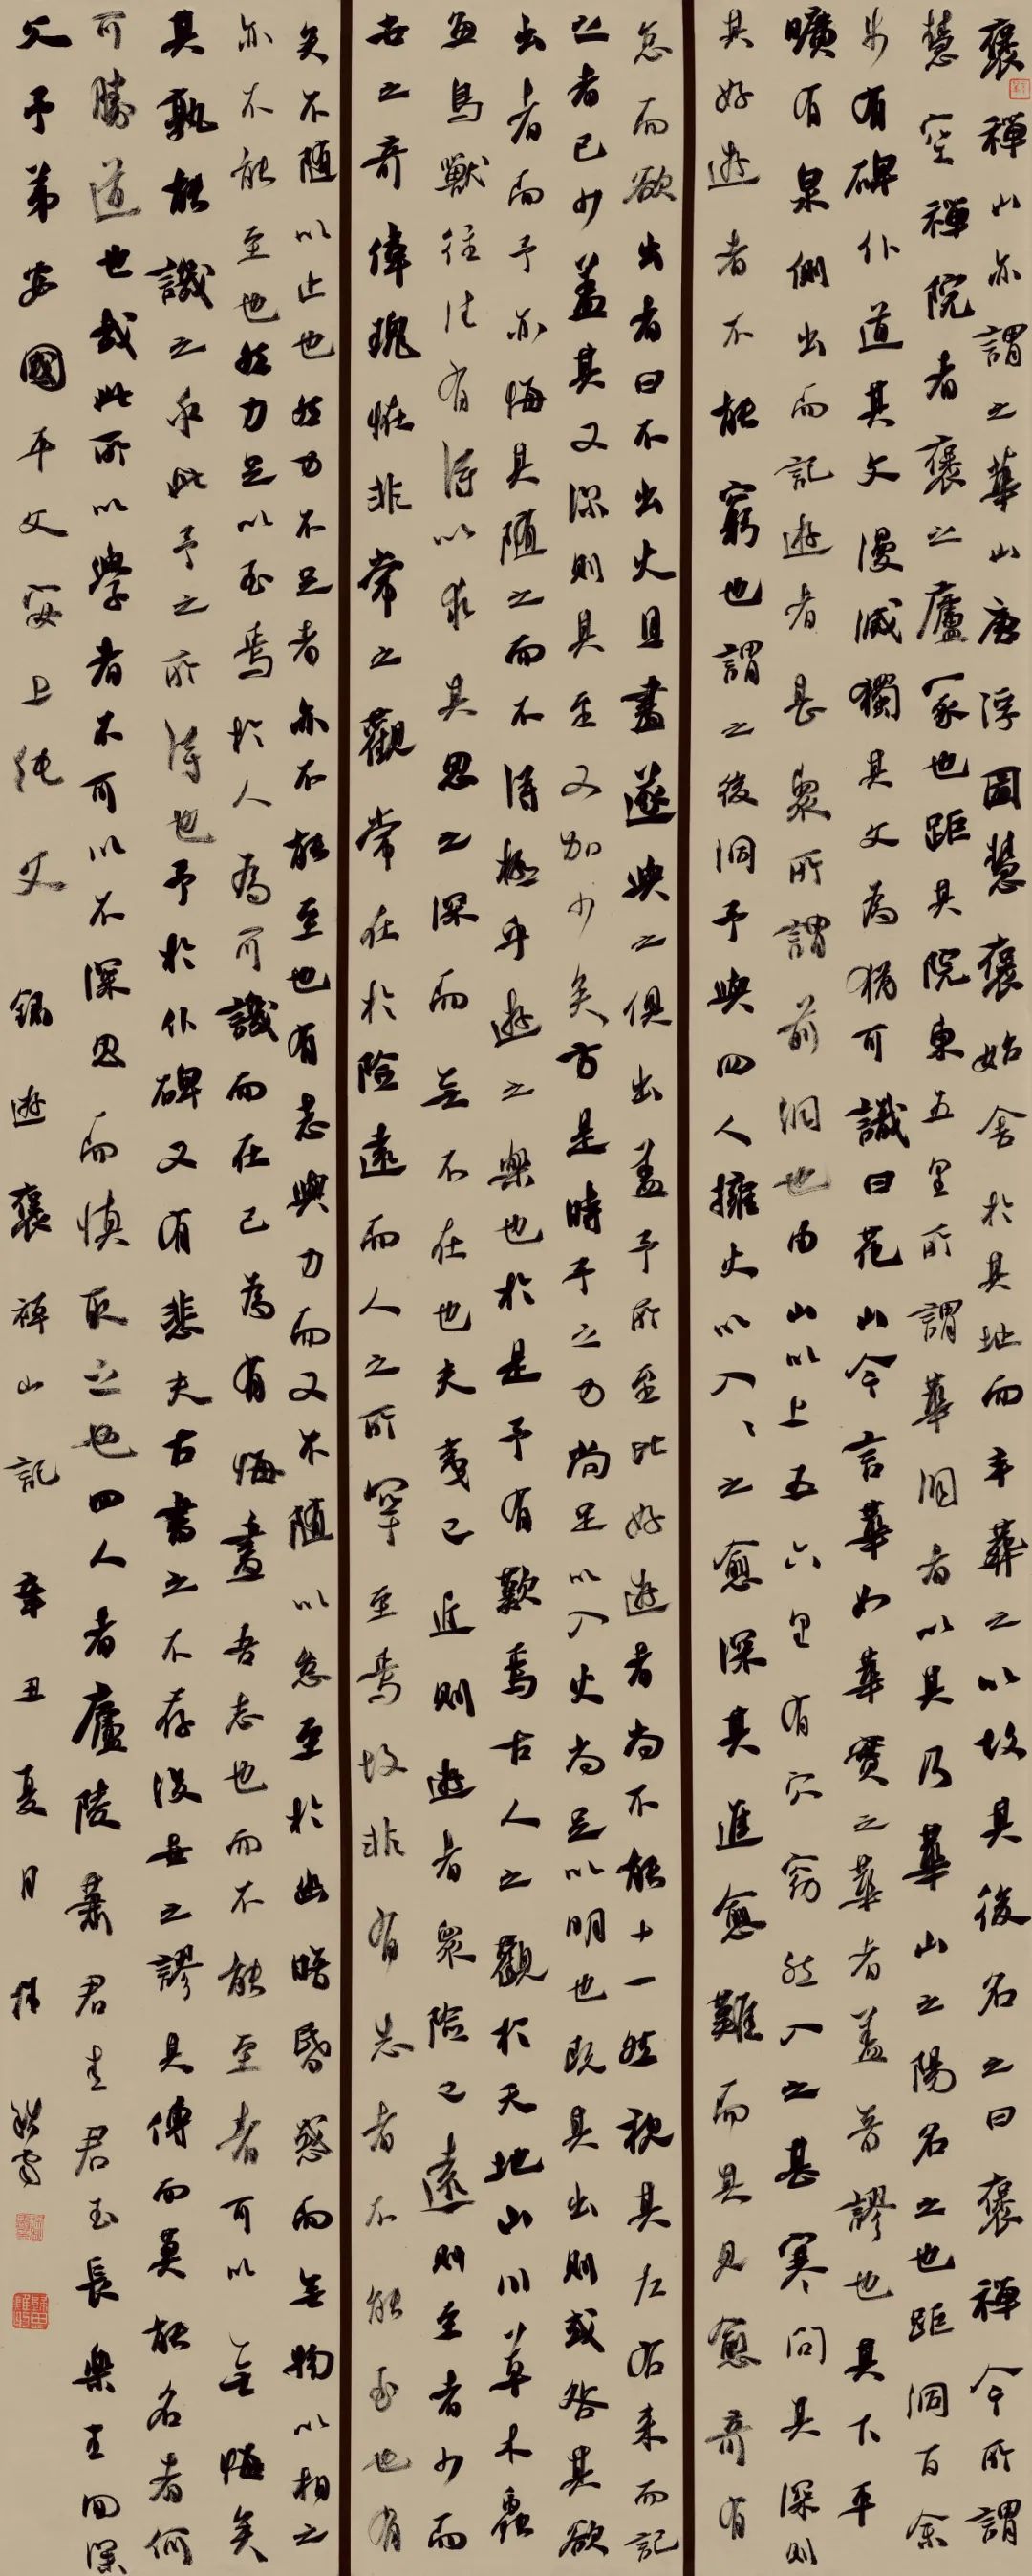 褒禪山亦謂之華山唐浮圖慧褒始舍於其址而卒葬之以故其後名之曰褒禪今所謂
慧空禪院者褒之廬冢也距其院東五里所謂華洞者以其乃華山之陽名之也距洞百余
步有碑仆道其文漫滅獨其文為猶可識曰花山今言華如華實之華者蓋音謬也其下平
曠有泉側出而記遊者甚眾所謂前洞也由山以上五六里有穴窈然入之甚寒問其深則
其好遊者不能窮也謂之後洞予與四人擁火以入入之愈深其進愈難而其見愈奇有
怠而欲出者曰不出火且盡遂與之俱出蓋予所至比好遊者尚不能十一然視其左右來而記
之者已少蓋其又深則其至又加少矣方是時予之力尚足以入火尚足以明也既其出則或咎其欲
出者而予亦悔其隨之而不得極乎遊之樂也於是予有歎焉古人之觀於天地山川草木蟲
魚鳥獸往往有得以求其思之深而無不在也夫夷已近則遊者眾險已遠則至者少而
世之奇偉瑰怪非常之觀常在於險遠而人之所罕至焉故非有志者不能至也有
矣不隨以止也然力不足者亦不能至也有志與力而又不隨以怠至於幽暗昏惑而無物以相之
亦不能至也然力足以至焉於人為可譏而在己為有悔盡吾志也而不能至者可以無悔矣
其孰能譏之乎此予之所得也予於仆碑又有悲夫古書之不存後世之謬其傳而莫能名者何
可勝道也哉此所以學者不可以不深思而慎取之也四人者廬陵蕭君圭君玉長樂王回深
父予弟安國平父安上純父 錄遊褒禪山記 辛丑夏月